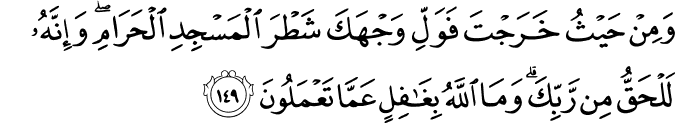 وَمِنْ حَيْثُ خَرَجْتَ فَوَلِّ وَجْهَكَ شَطْرَ ٱلْمَسْجِدِ ٱلْحَرَامِ ۖ وَإِنَّهُۥ
لَلْحَقُّ مِن رَّبِّكَ ۗ وَمَا ٱللَّهُ بِغَٰفِلٍ عَمَّا تَعْمَلُونَ ١٤٩